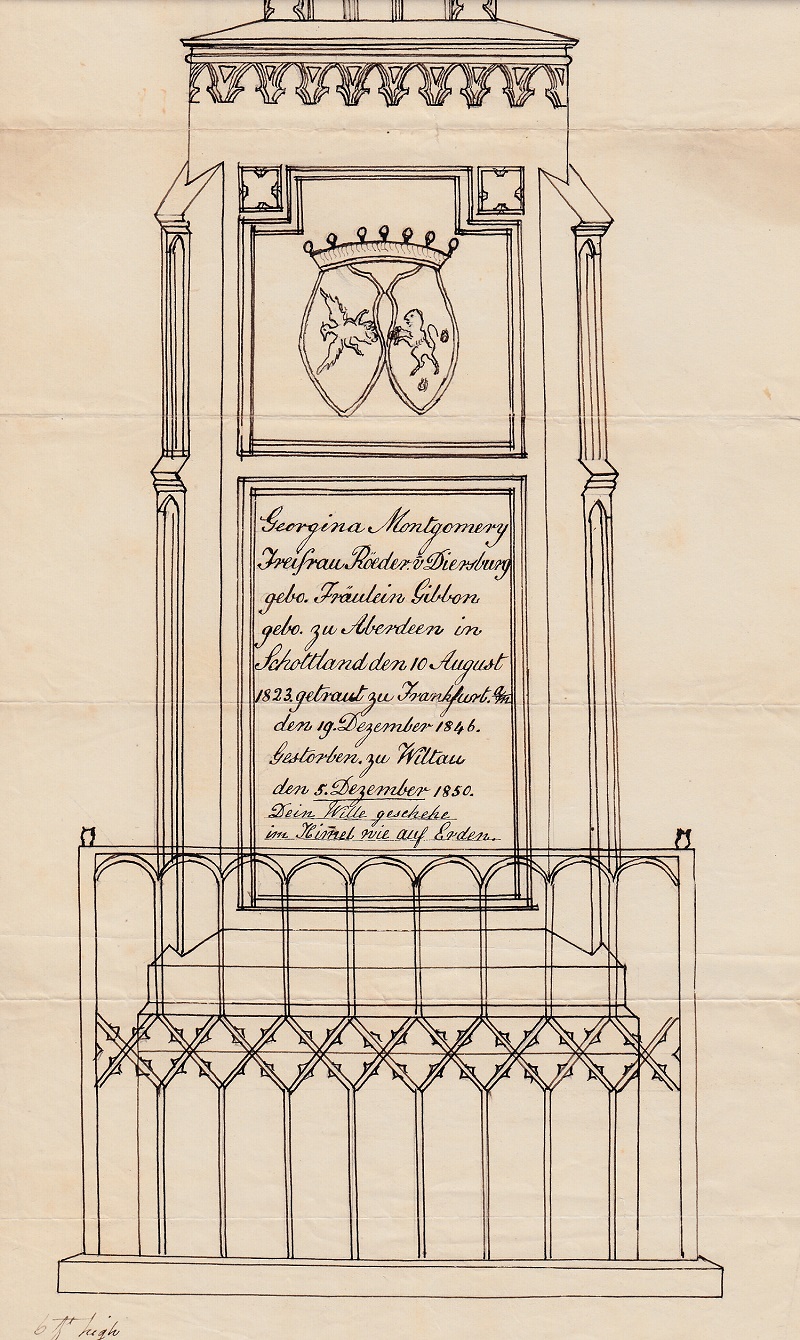 Georgina Montgomery
Freifrau Röeder. v Diersburg
gebo. Fräulein Gibbon
gebo. zu Aberdeen in
Schottland den 10 August
1823. getraut zu Frankfurt. a/m
den 19. Dezember 1846.
Gestorben. zu Wiltau
den 5. Dezember 1850.
Dein Wille geschehe
im Him̄el wie auf Erden.
6 ft high